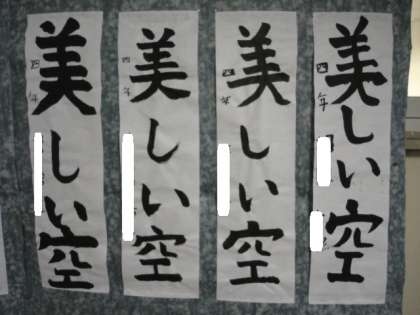 美しい空
四年
美しい空
四年
美しい空
四年
美しい空
四年